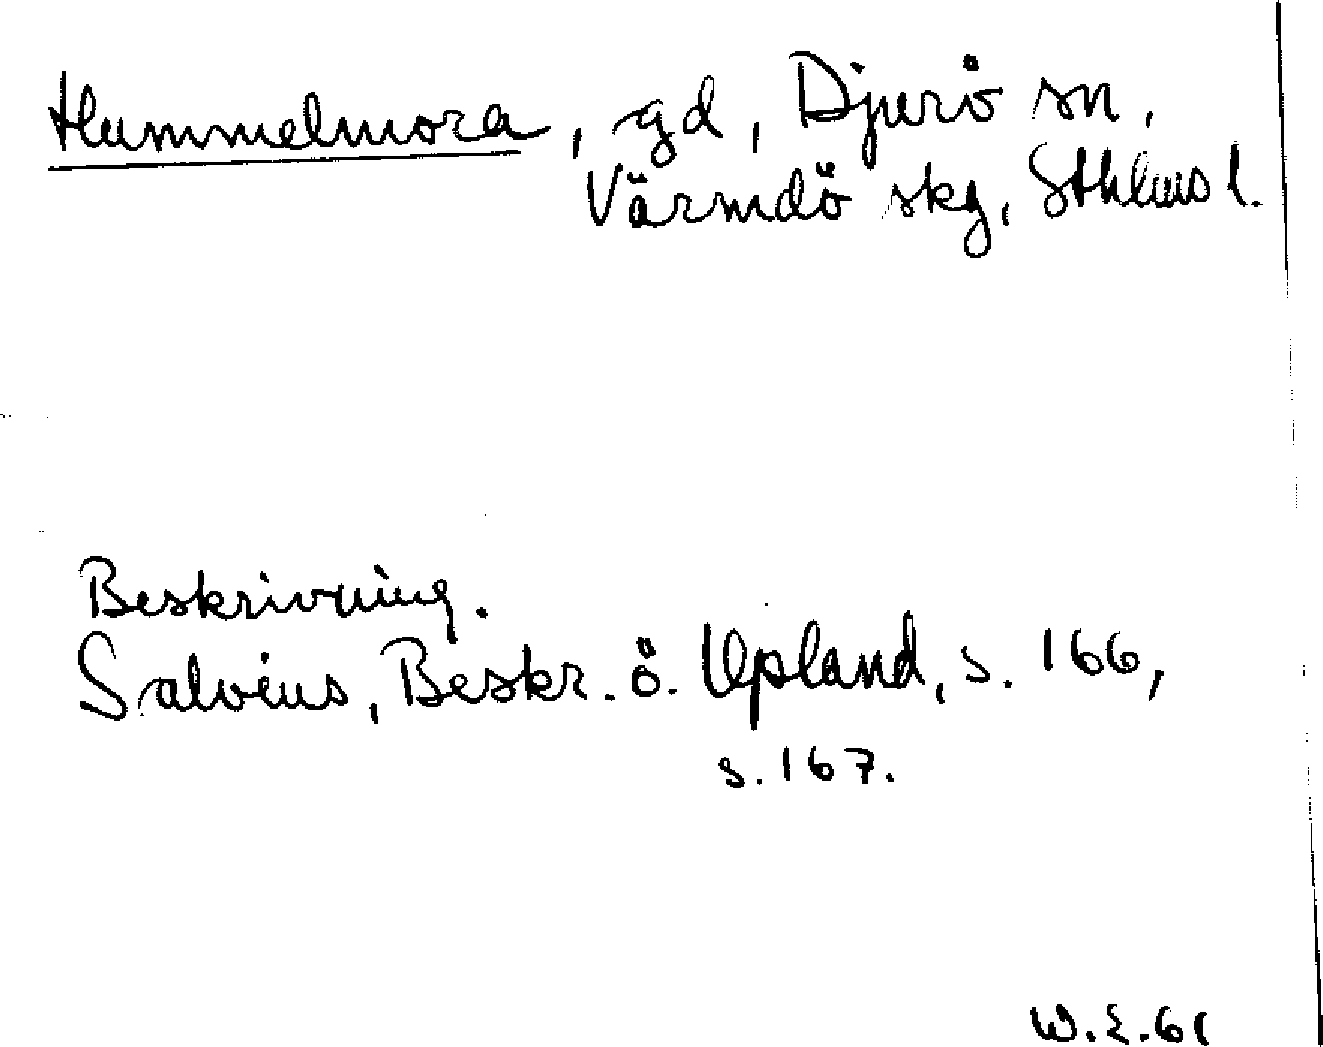 Hummelmora, gd, Djurö sn,
Värmdö skg, Sthlms l.
Beskrivning.
Salvius, Beskr. ö. Upland, s. 166,
s. 167.
W.E.61